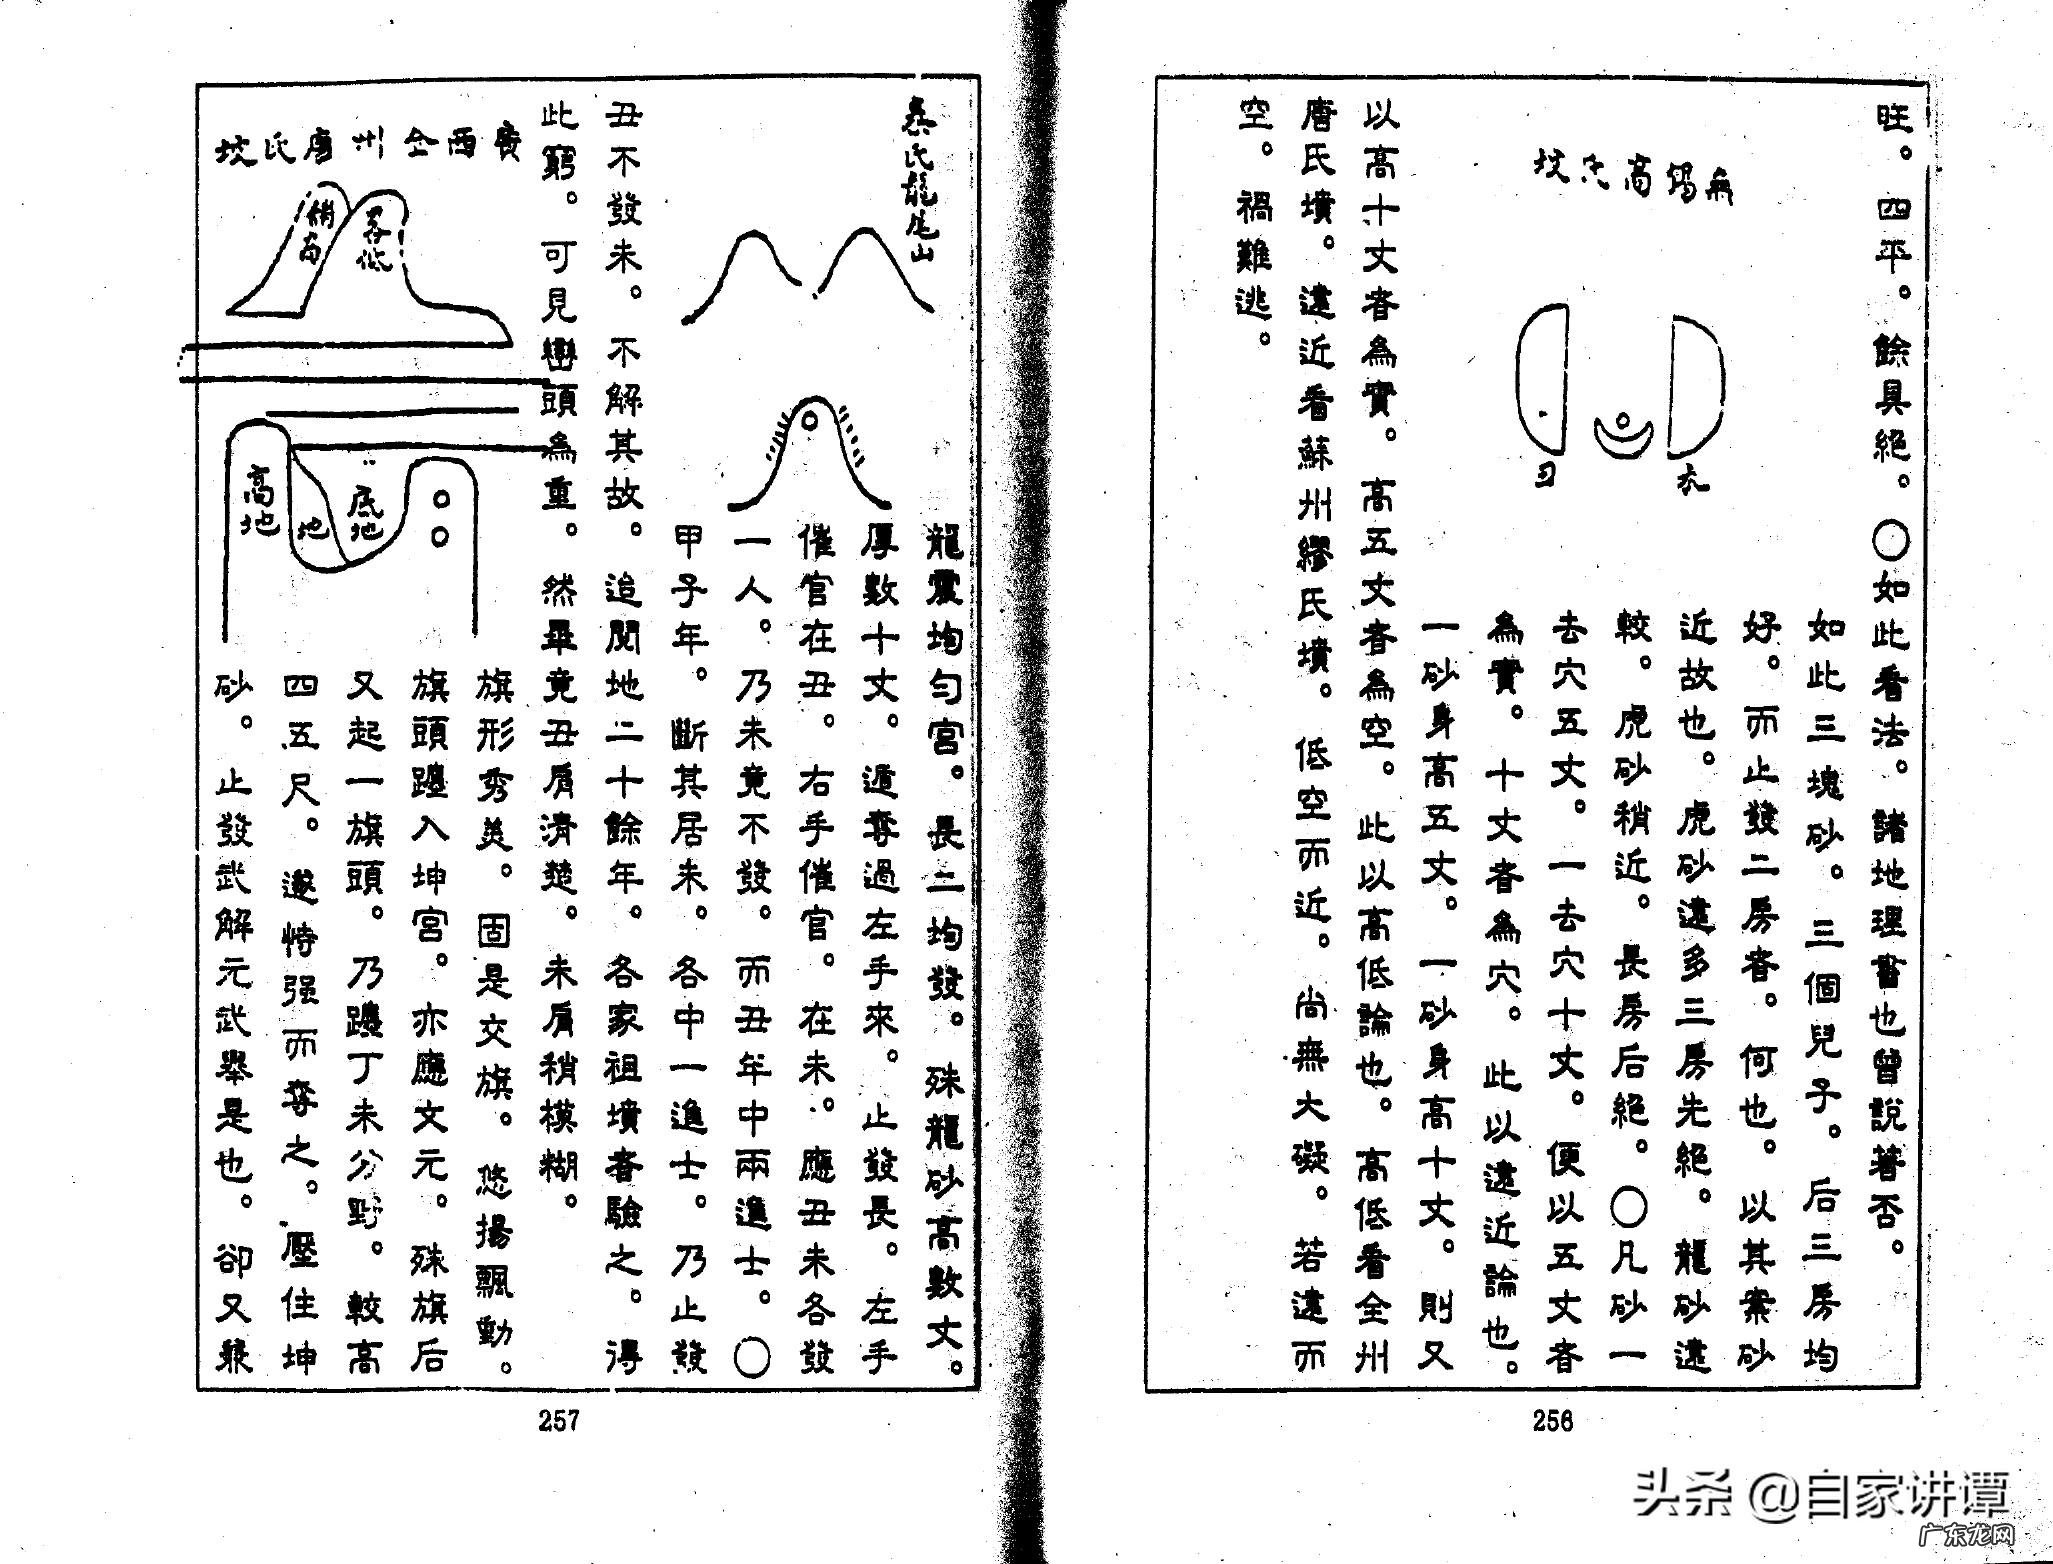 旺。四平。餘具絕。〇如此看法。諸地理書也曾說著否。
無錫高氏坟
如此三塊砂。三個兒子。后三房均
好。而止發二房者。何也。以其案砂
近故也。虎砂遠多三房先絕。龍砂遠
較。虎砂稍近。長房后絕。〇凡砂一
去穴五丈。一去穴十丈。便以五丈者
為實。十丈者為穴。此以遠近論也。
一砂身高五丈。一砂身高十丈。則又
以高十丈者為實。高五丈者為空。此以高低論也。高低看全州
唐氏墳。遠近看蘇州繆氏墳。低空而近。尚無大礙。若遠而
空。禍難逃。
256
氏龍尾山
龍震均勻宮。長三均發。殊龍砂高數丈。
厚數十丈。遁奪過左手來。止發長。左手
催官在丑。右手催官。在未。應丑未各發
一人。乃未竟不發。而丑年中兩進士。〇
甲子年。斷其居未。各中一進士。乃止發
丑不發未。不解其故。追閱地二十餘年。各家祖墳者驗之。得
此竅。可見巒頭為重。然畢竟丑肩清楚。未肩稍模糊。
廣西全州唐氏坟
稍高
畧低
高地
地
底地
旗形秀美。固是交旗。悠揚飄動。
旗頭躔入坤宮。亦應文元。殊旗后
又起一旗頭。乃躔丁未分野。較高
四五尺。遂恃强而奪之。壓住坤
砂。止發武解元武舉是也。卻又兼
257
头条 @自家讲谭
广东龙网